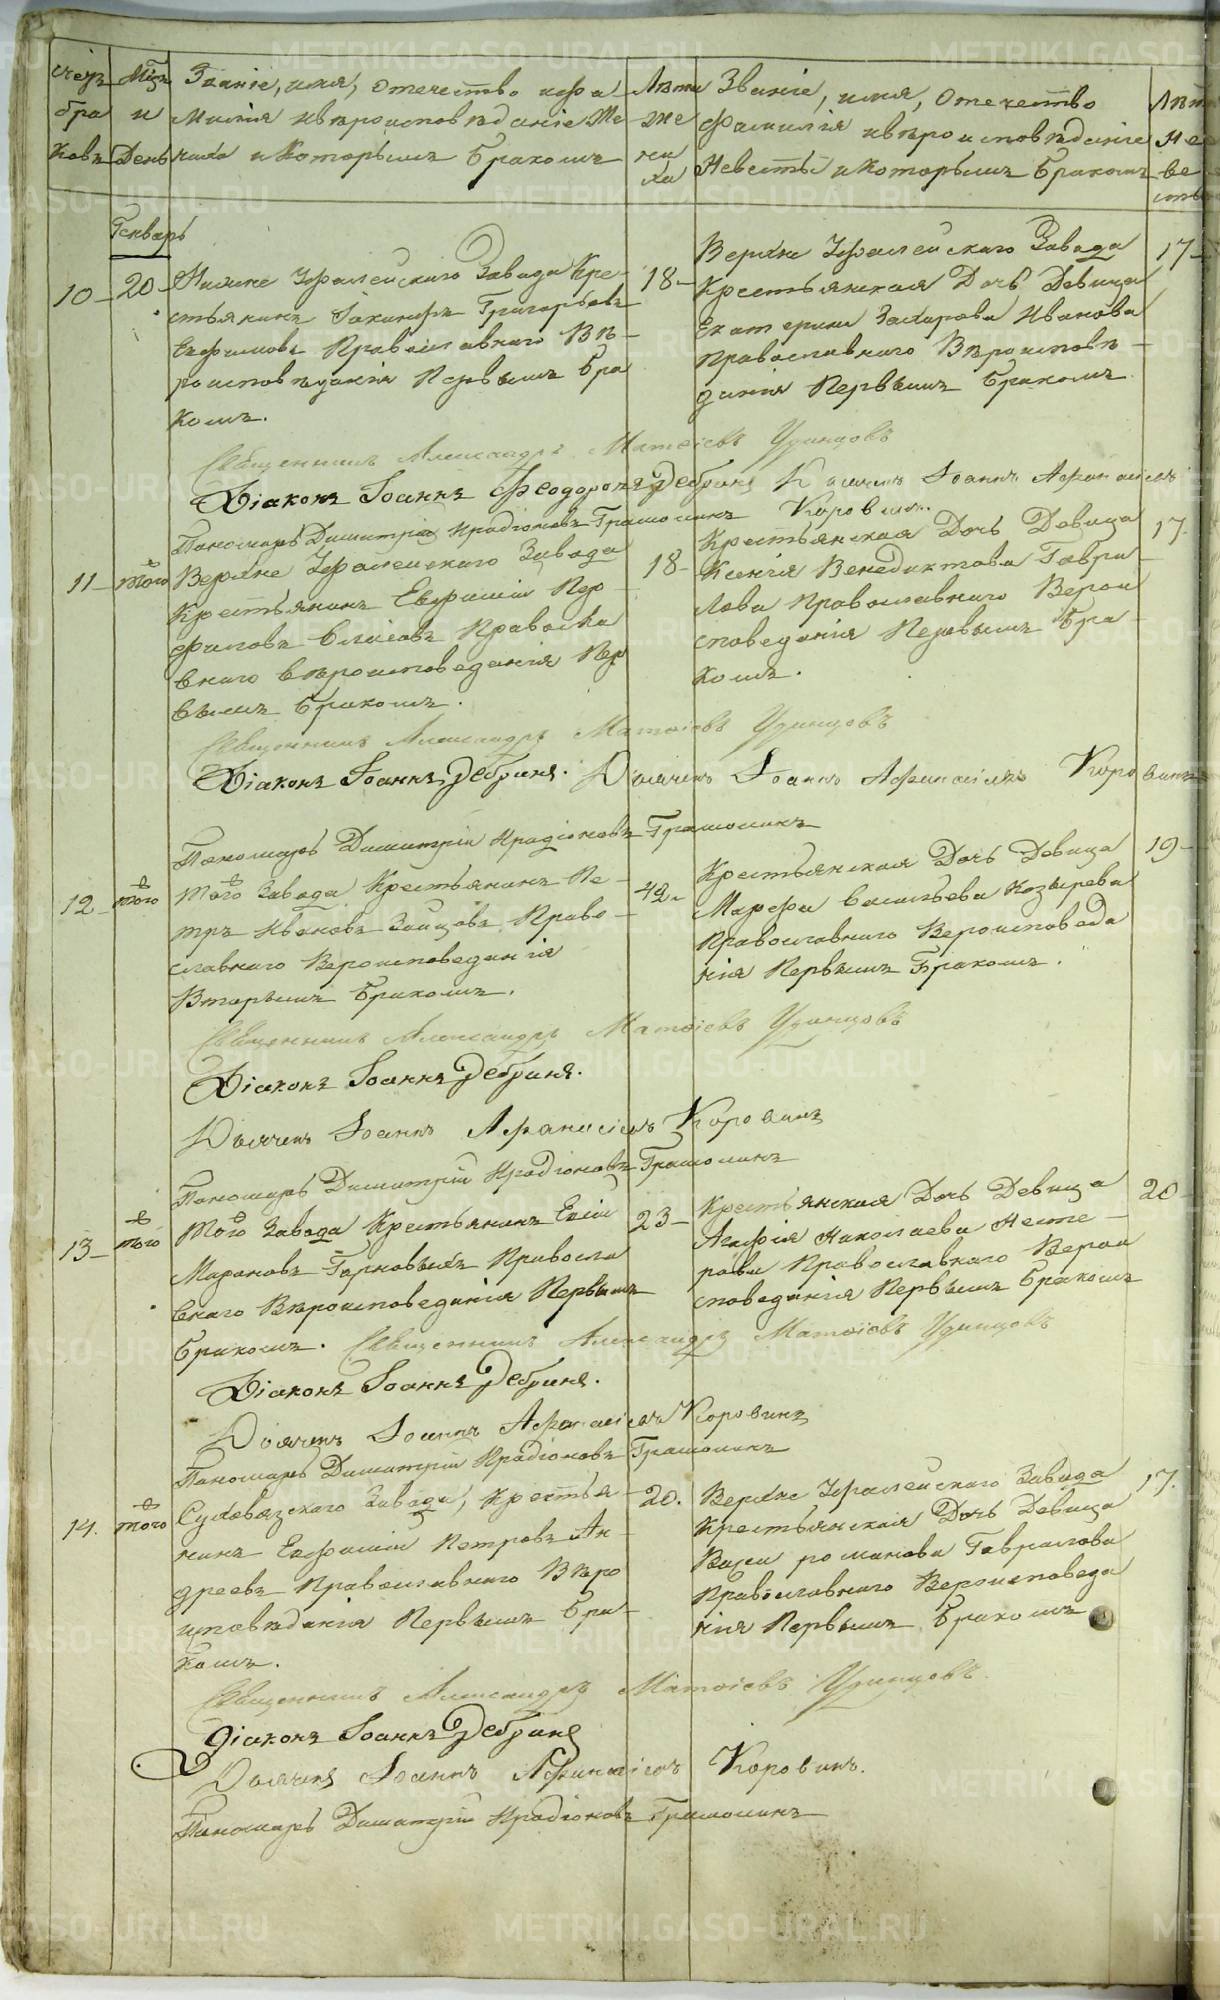 счетъ браковъ
Мцъ и День
Званіе, имя, отечество и фамилія и вѣроисповѣданіе Жениха и которымъ бракомъ
Лѣта жениха
Званіе, имя, отечество фамилія и вѣроисповѣданіе Невесты и которымъ бракомъ
Лѣта Невесты
Генварь
10 20
Нижне Уфалейскаго Завода Кре-
стьянинъ Григорьевъ
Ефимовъ Православнаго Вѣ-
роисповѣданія Первымъ бра
комъ.
18
Верхне Уфалейскаго Завода
Крестьянская Дочь Девица
Екатерина Захарова Иванова
Православнаго Вѣроисповѣ-
данія Первымъ бракомъ
17
Священникъ Александръ Матѳіевъ Удинцовъ
Діаконъ Іоаннъ Феодоровъ Дебринъ Дьячекъ Іоаннъ Афанасіевъ
Коровинъ.
Пономарь Димитрій Иродіоновъ Грамолинъ
11 того
Верхне Уфалейскаго Завода
Крестьянинъ Евфимій Пор
фировъ Елисовъ Правосла
внаго вѣроисповеданія Пер
вымъ бракомъ.
18
Крестьянская Дочь Девица
Ксенія Венедиктова Гаври-
лова Православнаго Верои
споведанія Первымъ бра
комъ.
17.
Священникъ Александръ Матѳіевъ Удинцовъ
Діаконъ Іоаннъ Дебринъ. Дьячекъ Іоаннъ Афанасіевъ Коровинъ
Пономарь Димитрій Иродіоновъ Грамолинъ
12 того
Того Завода Крестьянинъ Пе-
тръ Ивановъ Зайцовъ Право-
славнаго Вероисповеданія
Вторымъ бракомъ.
42
Крестьянская Дочь Девица
Марфа Васильева Козырева
Православнаго Вероисповеда
нія Первымъ бракомъ.
19
Священникъ Александръ Матѳіевъ Удинцовъ
Діаконъ Іоаннъ Дебринъ.
Дьячекъ Іоаннъ Афанасіевъ Коровинъ
Пономарь Димитрій Иродіоновъ Грамолинъ
13 того
Того Завода Крестьянинъ
Мароновъ Горновыхъ Правосла
внаго Вѣроисповеданія Первымъ
бракомъ.
23
Крестьянская Дочь Девица
Агафія Николаева Несте-
рова Православнаго Верои
споведанія Первымъ бракомъ
20
Священникъ Александръ Матѳіевъ Удинцовъ
Діаконъ Іоаннъ Дебринъ.
Дьячекъ Іоаннъ Афанасіевъ Коровинъ
Пономарь Димитрій Иродіоновъ Грамолинъ
14. того
Суховязскаго Завода, Крестья-
нинъ Евфимій Петровъ Ан-
дреевъ Православнаго Вѣро
исповѣданія Первымъ бра-
комъ.
20.
Верхне Уфалейскаго Завода
Крестьянская Дочь Девица
романова Гаврилова
Православнаго Вероисповеда
нія Первымъ бракомъ
17.
Священникъ Александръ Матѳіевъ Удинцовъ.
Діаконъ Іоаннъ Дебринъ
Дьячекъ Іоаннъ Афанасіевъ Коровинъ.
Пономарь Димитрій Иродіоновъ Грамолинъ
METRIKI.GASO-URAL.RU